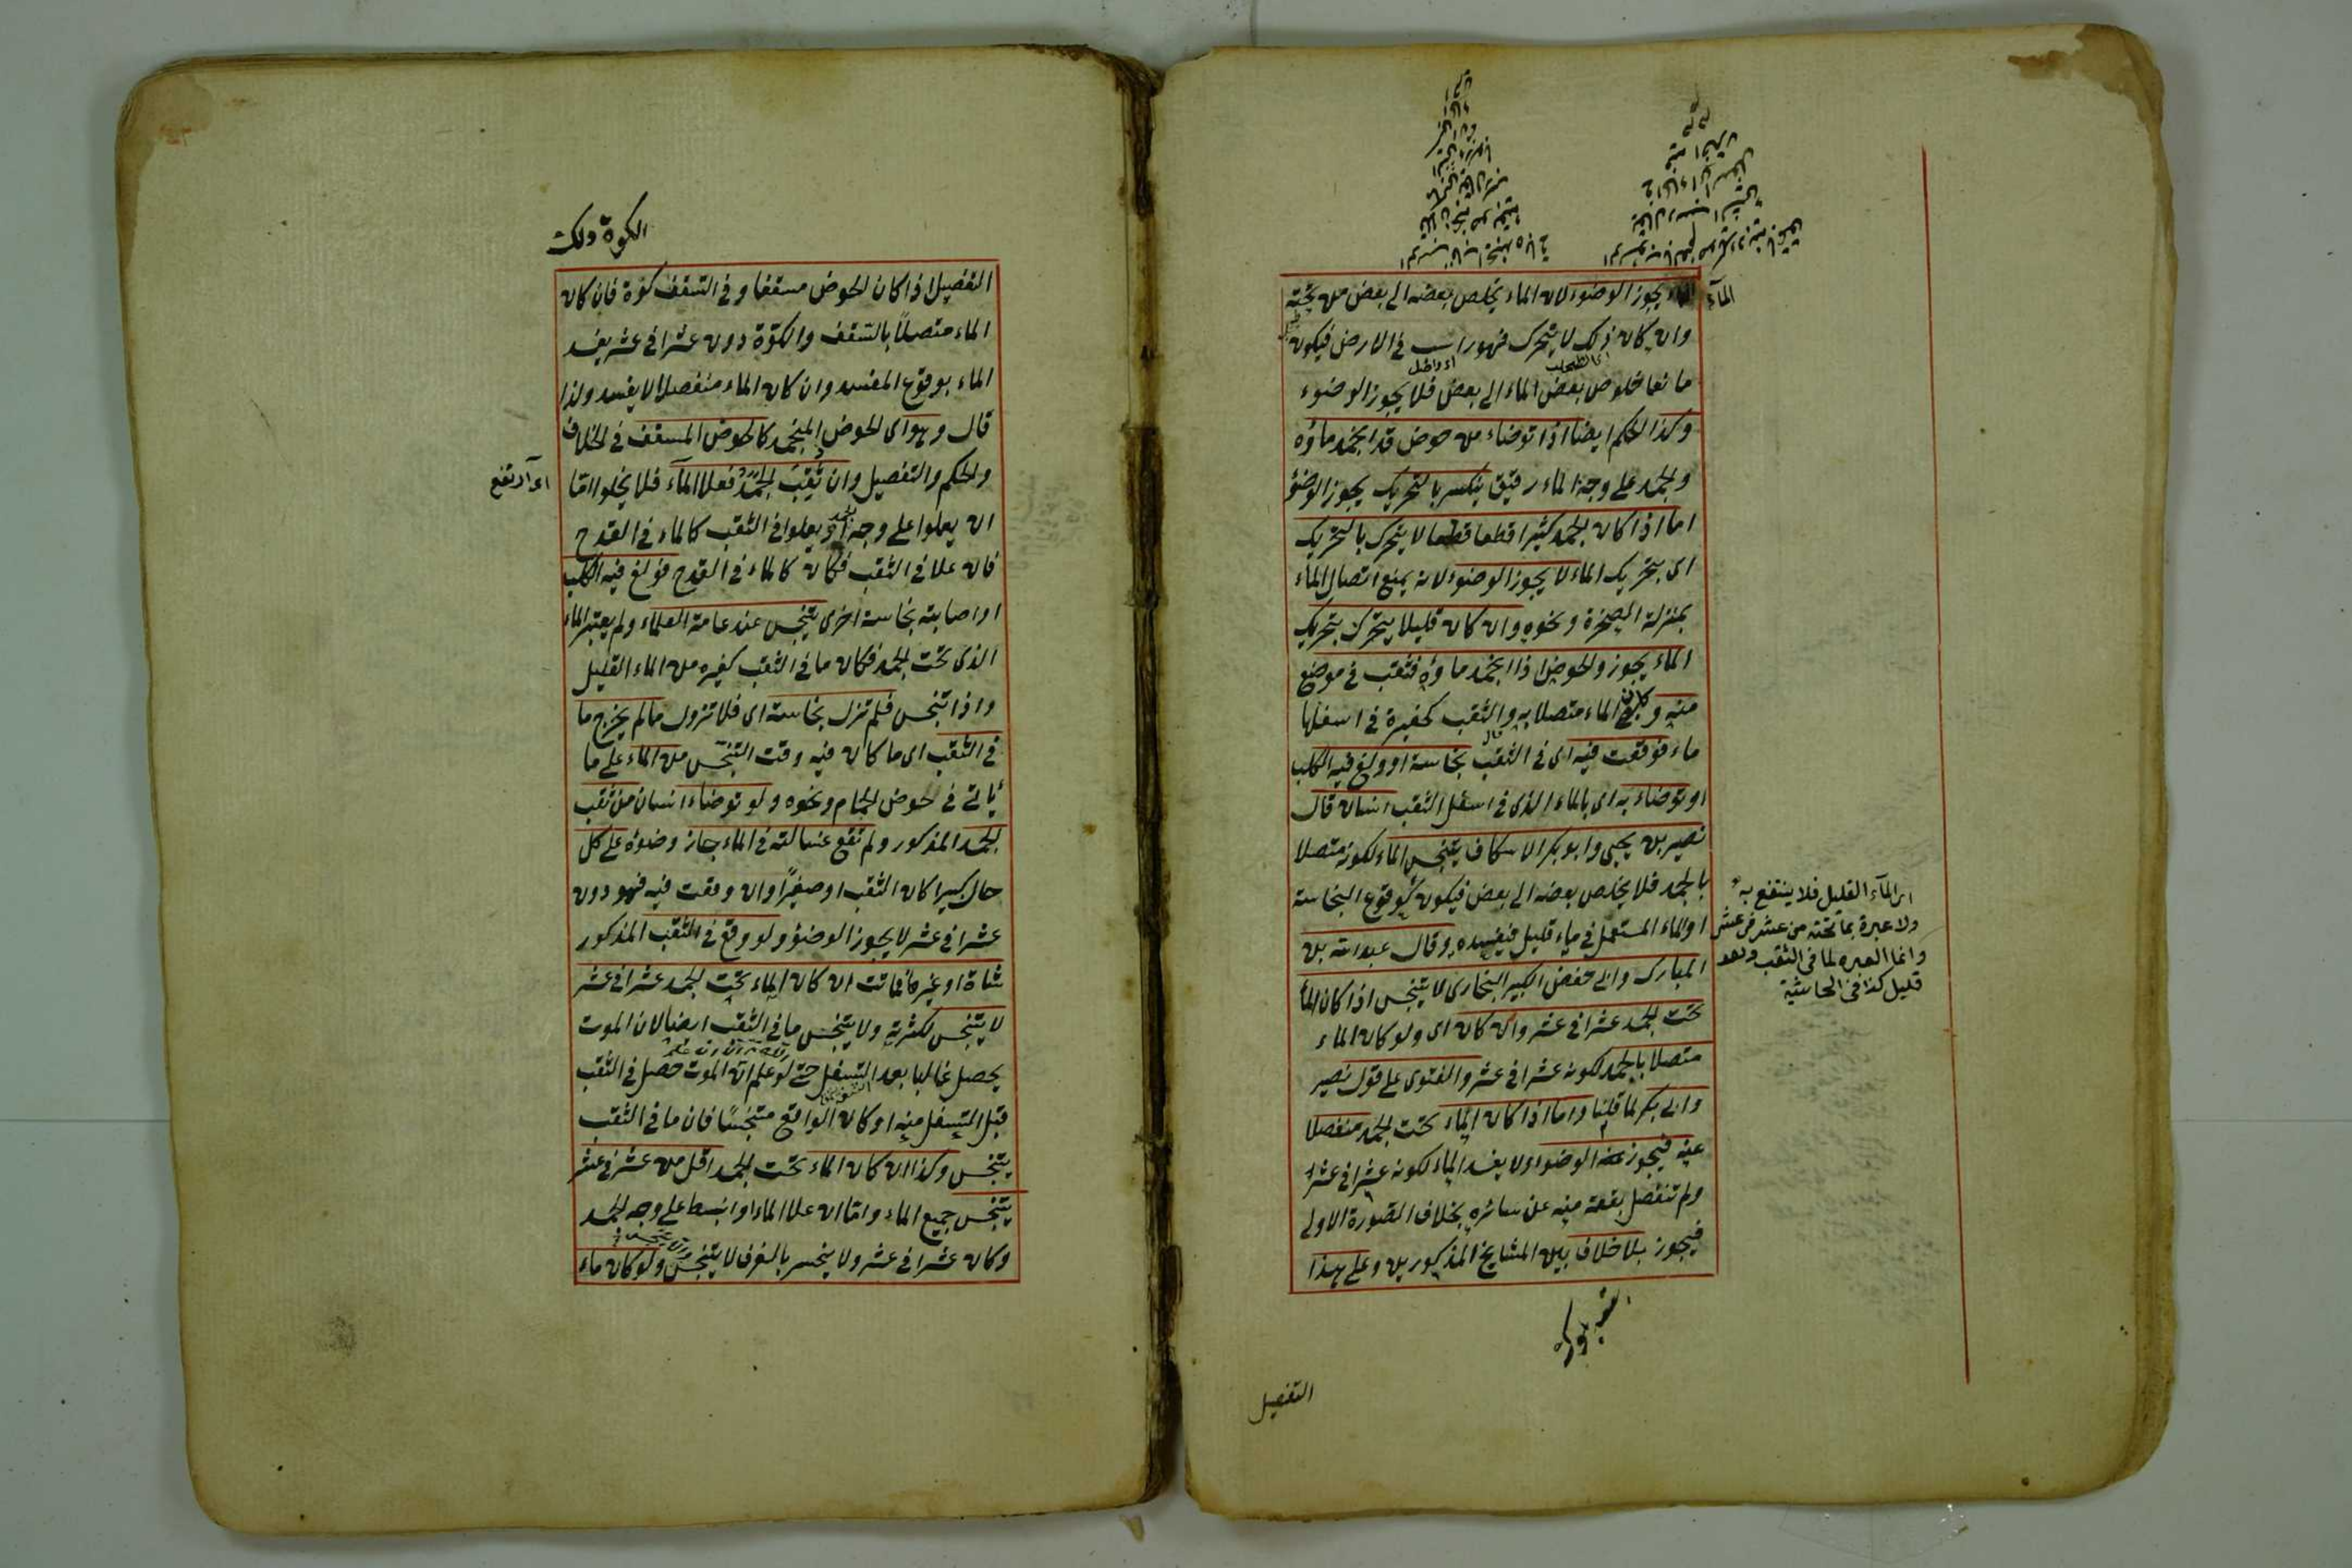 الماء يجوز الوضوء لان الماء يخلص بعضه الى بعض من تحته
الماء
وان كان ذلك لا يتحرك فهو راسب في الارض فيكون
اى الطحلب
مانعا خلوص بعض الماء الى بعض فلا يجوز الوضوء
وكذا الحكم ايضا اذا توضاء من حوض قد انجمد ماؤه
والجمد على وجه الماء رقيق ينكسر بالتحريك يجوز الوضؤ
اما اذا كان الجمد كثيرا قطعا قطعا لا يتحرك بالتحريك
اى بتحريك الماء لا يجوز الوضوء لانه يمنع اتصال الماء
بمنزلة الصخرة ونحوه وان كان قليلا يتحرك بتحريك
الماء يجوز والحوض اذا انجمد ماؤه فثقب في موضع
منه وكان الماء متصلا به والثقب كحفيرة في اسفلها
ماء فوقعت فيه اى في الثقب نجاسة او ولغ فيه الكلب
او توضاء به اى بالماء الذى في اسفل الثقب انسان قال
نصير بن يحيى وابو بكر الاسكاف يتنجس الماء لكونه متصلا
بالجمد فلا يخلص بعضه الى بعض فيكون كوقوع النجاسة
او الماء المستعمل في ماء قليل فيفسده وقال عبد الله بن
المبارك وابى حفص الكبير البخارى لا يتنجس اذا كان الماء
تحت الجمد عشرا في عشر وان كان اى ولو كان الماء
متصلا بالجمد لكونه عشرا في عشر والفتوى على قول نصير
وابى بكر لما قلنا واما اذا كان الماء تحت الجمد منفصلا
عنه فيجوز الوضوء ولا يفسد الماء لكونه عشرا في عشر
ولم تنفصل بقعة منه عن سائره بخلاف الصورة الاولى
فيجوز بلا خلاف بين المشايخ المذكورين وعلى هذا
التفصيل
اى الماء القليل فلا ينتفع به
ولا عبرة بما تحته من عشر في عشر
وانما العبره لما في الثقب وهو
قليل كذا في الحاشية
الكوة ولك
التفصيل اذا كان الحوض مسقفا وفي السقف كوة فان كان
الماء متصلا بالسقف والكوة دون عشر في عشر يفسد
الماء بوقوع المفسد وان كان الماء منفصلا لا يفسد ولذا
قال وهو اى الحوض المنجمد كالحوض المسقف في الخلاف
والحكم والتفصيل وان ثقب الجمد فعلا الماء فلا يخلوا اما
اى ارتفع
ان يعلوا على وجه او يعلوا في الثقب كالماء في القدح
فان علا في الثقب فكان كالماء في القدح فولغ فيه الكلب
او اصابته نجاسة اخرى يتنجس عند عامة العلماء ولم يعتبر الماء
الذى تحت الجمد فكان ما في الثقب كغيره من الماء القليل
واذا تنجس فلم تزل نجاسته اى فلا تزول ما لم يخرج ما
في الثقب اى ما كان فيه وقت التنجس من الماء على ما
يأتى في حوض الحمام ونحوه ولو توضاء انسان من ثقب
الجمد المذكور ولم تقع غسالته في الماء جاز وضوءه على كل
حال كبيرا كان الثقب او صغيرا وان وقعت فيه فهو دون
عشر في عشر لا يجوز الوضؤ ولو وقع في الثقب المذكور
شاة او غيرها فماتت ان كان الماء تحت الجمد عشرا في عشر
لا يتنجس لكثرته ولا يتنجس ما في الثقب ايضا لان الموت
يحصل غالبا بعد التسفل حتى لو علم ان الموت حصل في الثقب
قبل التسفل منه او كان الواقع متنجسا فان ما في الثقب
يتنجس وكذا ان كان الماء تحت الجمد اقل من عشر في عشر
يتنجس جميع الماء واما ان علا الماء وانبسط على وجه الجمد
وكان عشرا في عشر ولا ينحسر بالغرف لا يتنجس ولو كان ماء